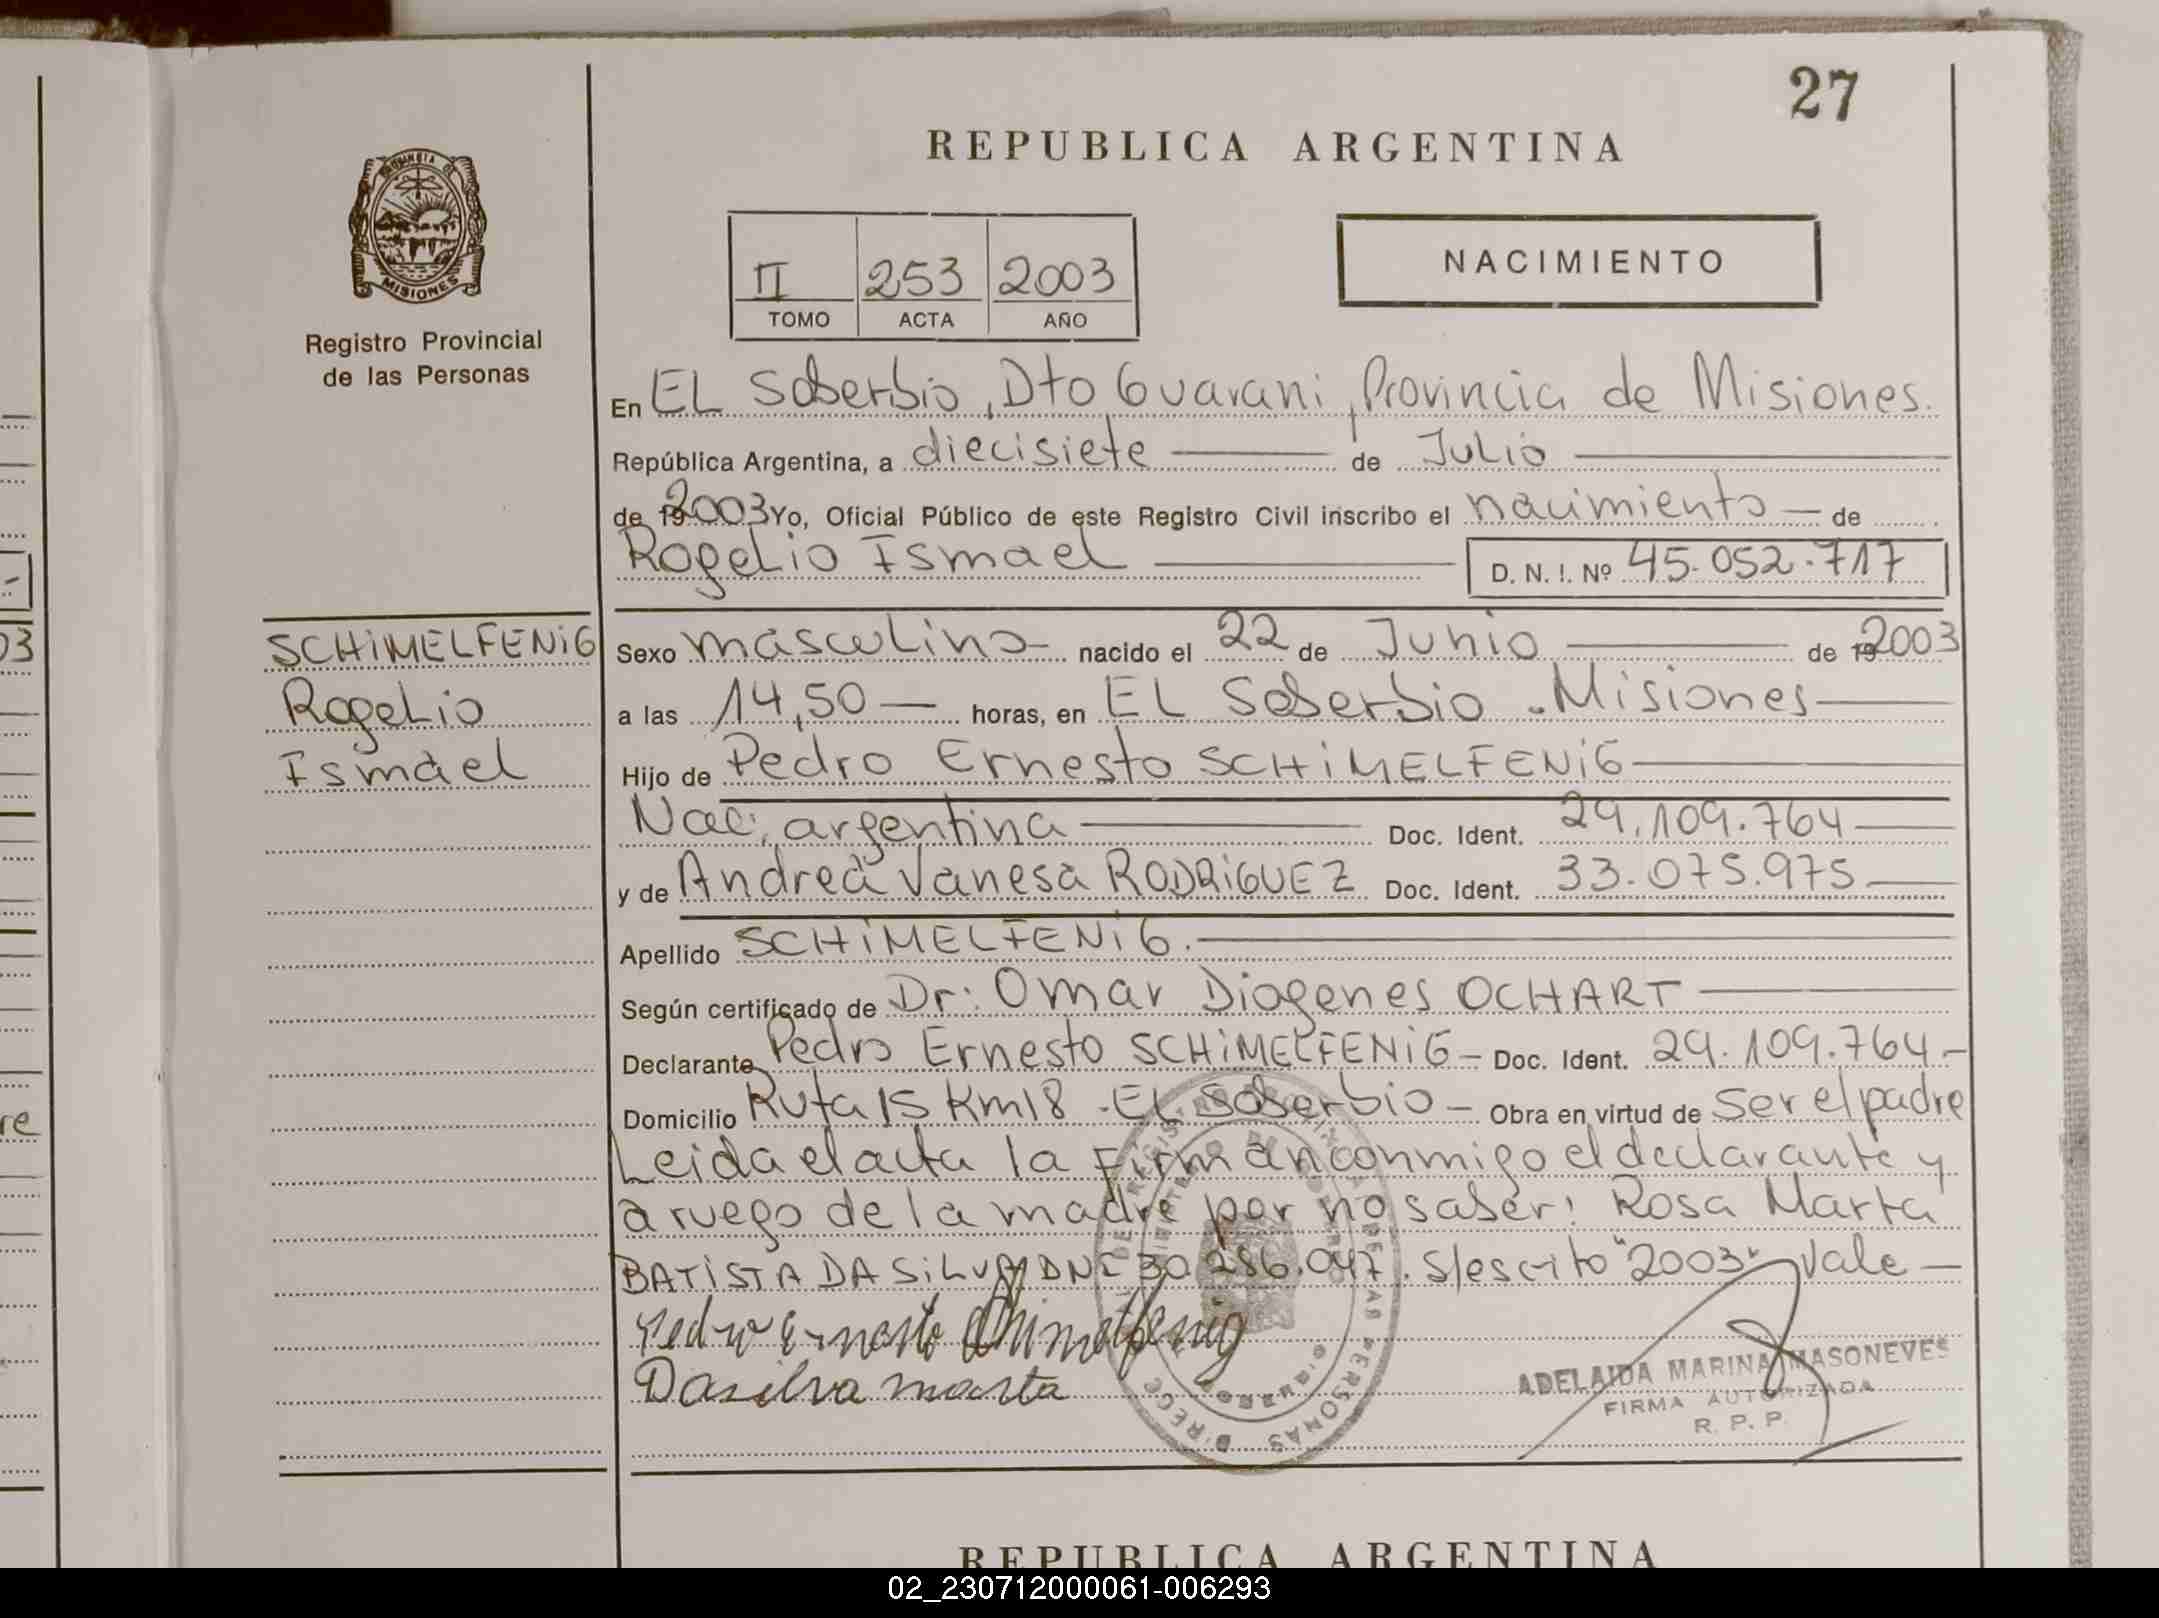 27
REPUBLICA ARGENTINA
PROVINCIA DE
MISIONES
Registro Provincial
de las Personas
II 253 2003
TOMO ACTA AÑO
NACIMIENTO
En EL Soberbio, Dto Guarani, Provincia de Misiones.
República Argentina, a diecisiete de Julio
de 192003 Yo, Oficial Público de este Registro Civil inscribo el nacimiento de
Rogelio Ismael D. N. I. Nº 45.052.717
SCHiMELFENiG
Rogelio
Ismael
Sexo masculino nacido el 22 de Junio de 192003
a las 14,50 horas, en EL Soberbio - Misiones
Hijo de Pedro Ernesto SCHiMELFENiG
Nac: argentina Doc. Ident. 29.109.764
y de Andrea Vanesa RODRiGUEZ Doc. Ident. 33.075.975
Apellido SCHiMELFENiG.
Según certificado de Dr: Omar Diogenes OCHART
Declarante Pedro Ernesto SCHiMELFENiG - Doc. Ident. 29.109.764 -
Domicilio Ruta 15 Km 18 - EL Soberbio - Obra en virtud de Ser el padre
Leida el acta la Firman conmigo el declarante y
a ruego de la madre por no saber: Rosa Marta
BATiSTA DA SiLVA DNI 30.286.047. S/escrito "2003" Vale -
Pedro Ernesto Schimelfenig
Dasilva marta
ADELAIDA MARINA MASONEVES
FIRMA AUTORIZADA
R. P. P.
REPUBLICA ARGENTINA
02_230712000061-006293